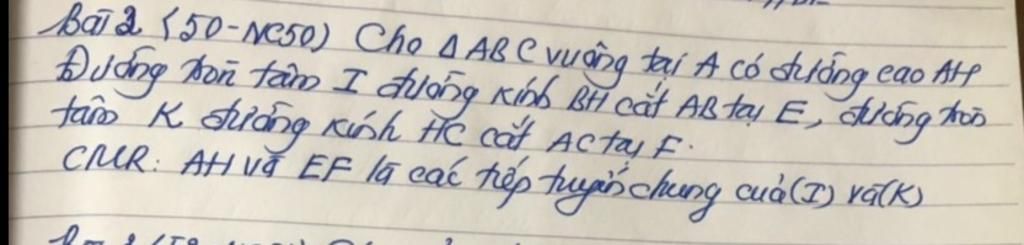 Bài 2 (50-NC50) Cho Δ ABC vuông tại A có đường cao AH
Đường tròn tâm I đường kính BH cắt AB tại E, đường tròn
tâm K đường kính HC cắt AC tại F.
CMR: AH và EF là các tiếp tuyến chung của (I) và (K)